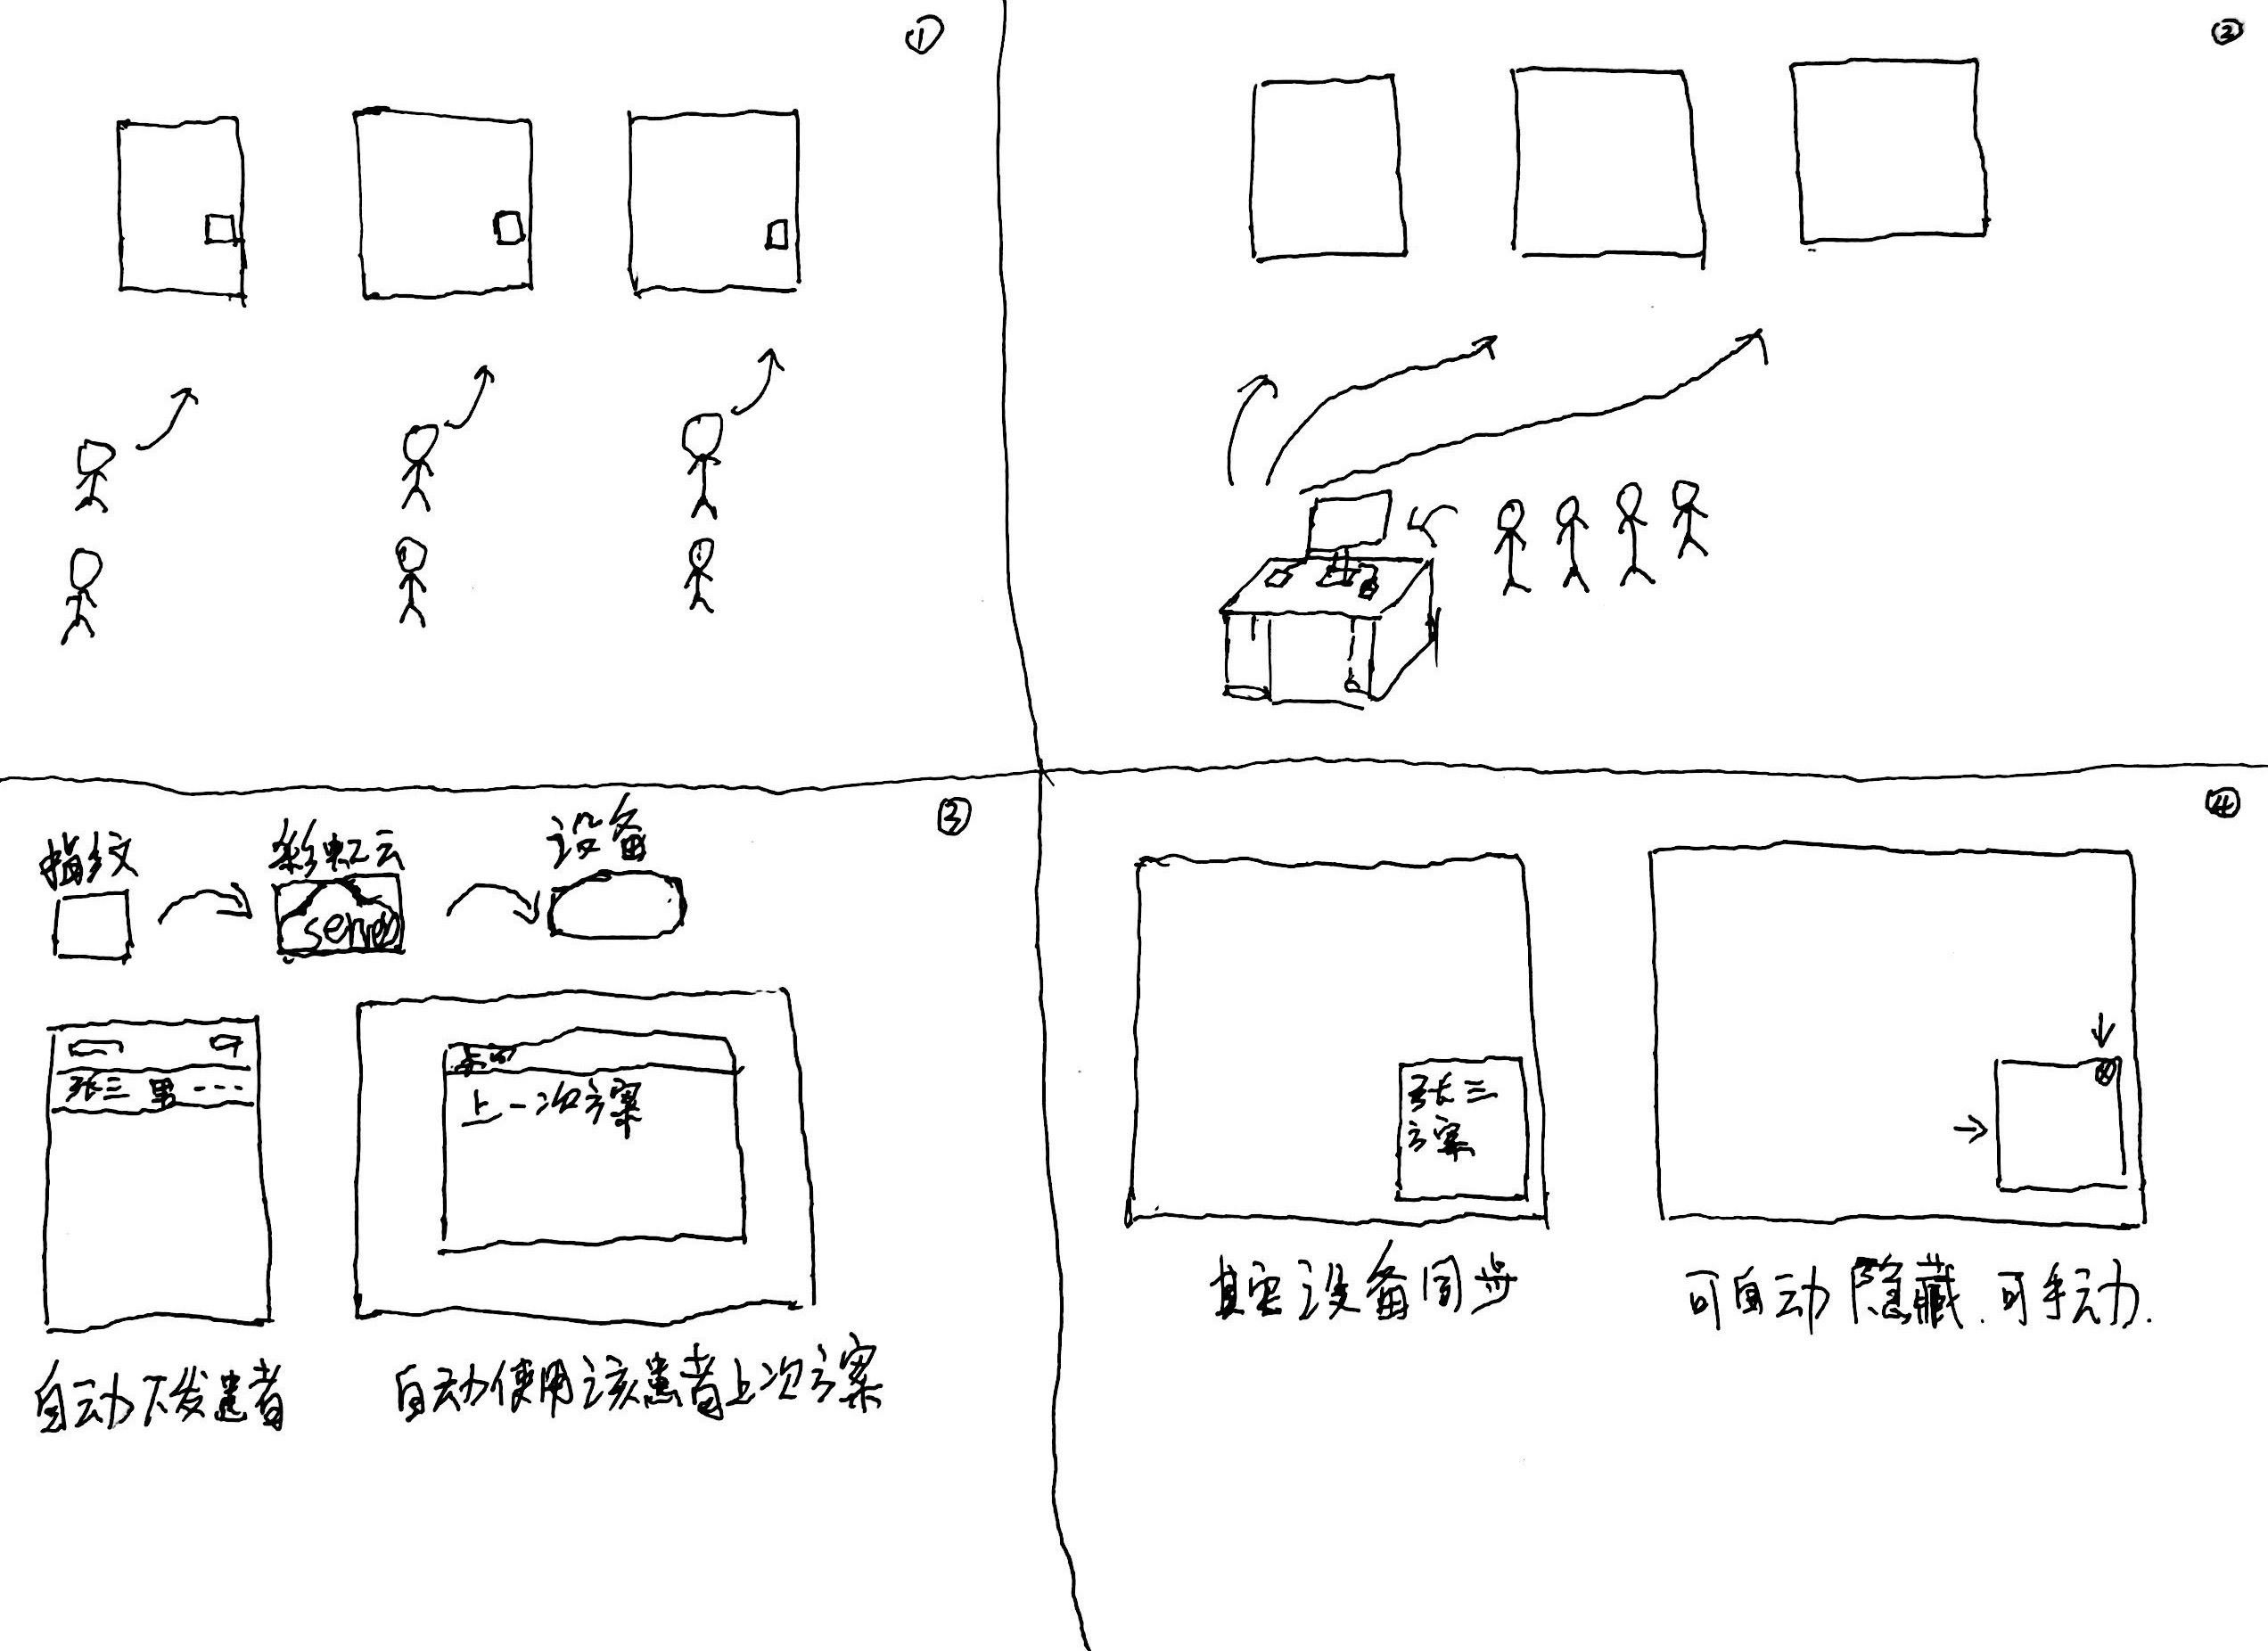 ①
②
③
指纹 彩虹云 设备
张三 男 ---
上一次方案
自动下发患者 自动使用该患者上次方案
④
张三
方案
其它设备同步 可自动隐藏.可手动.